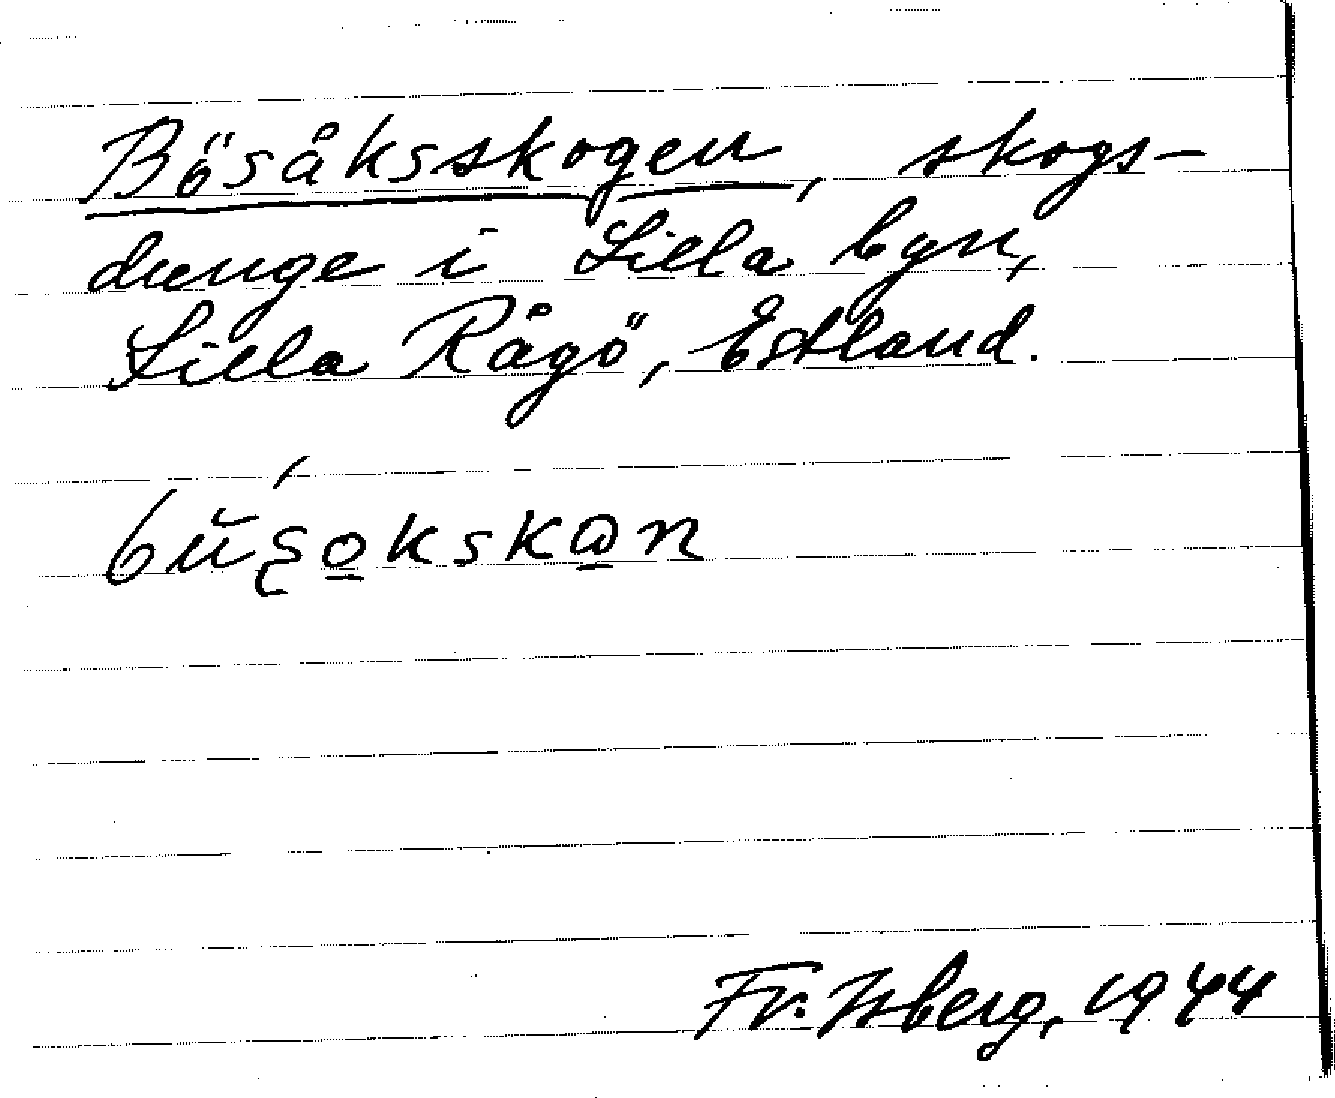 Bösåksskogen, skogs-
dunge i Lilla byn,
Lilla Rågö, Estland.
bŭ́ʂo̲kskⱺ̲n
Fr. Isberg, 1944